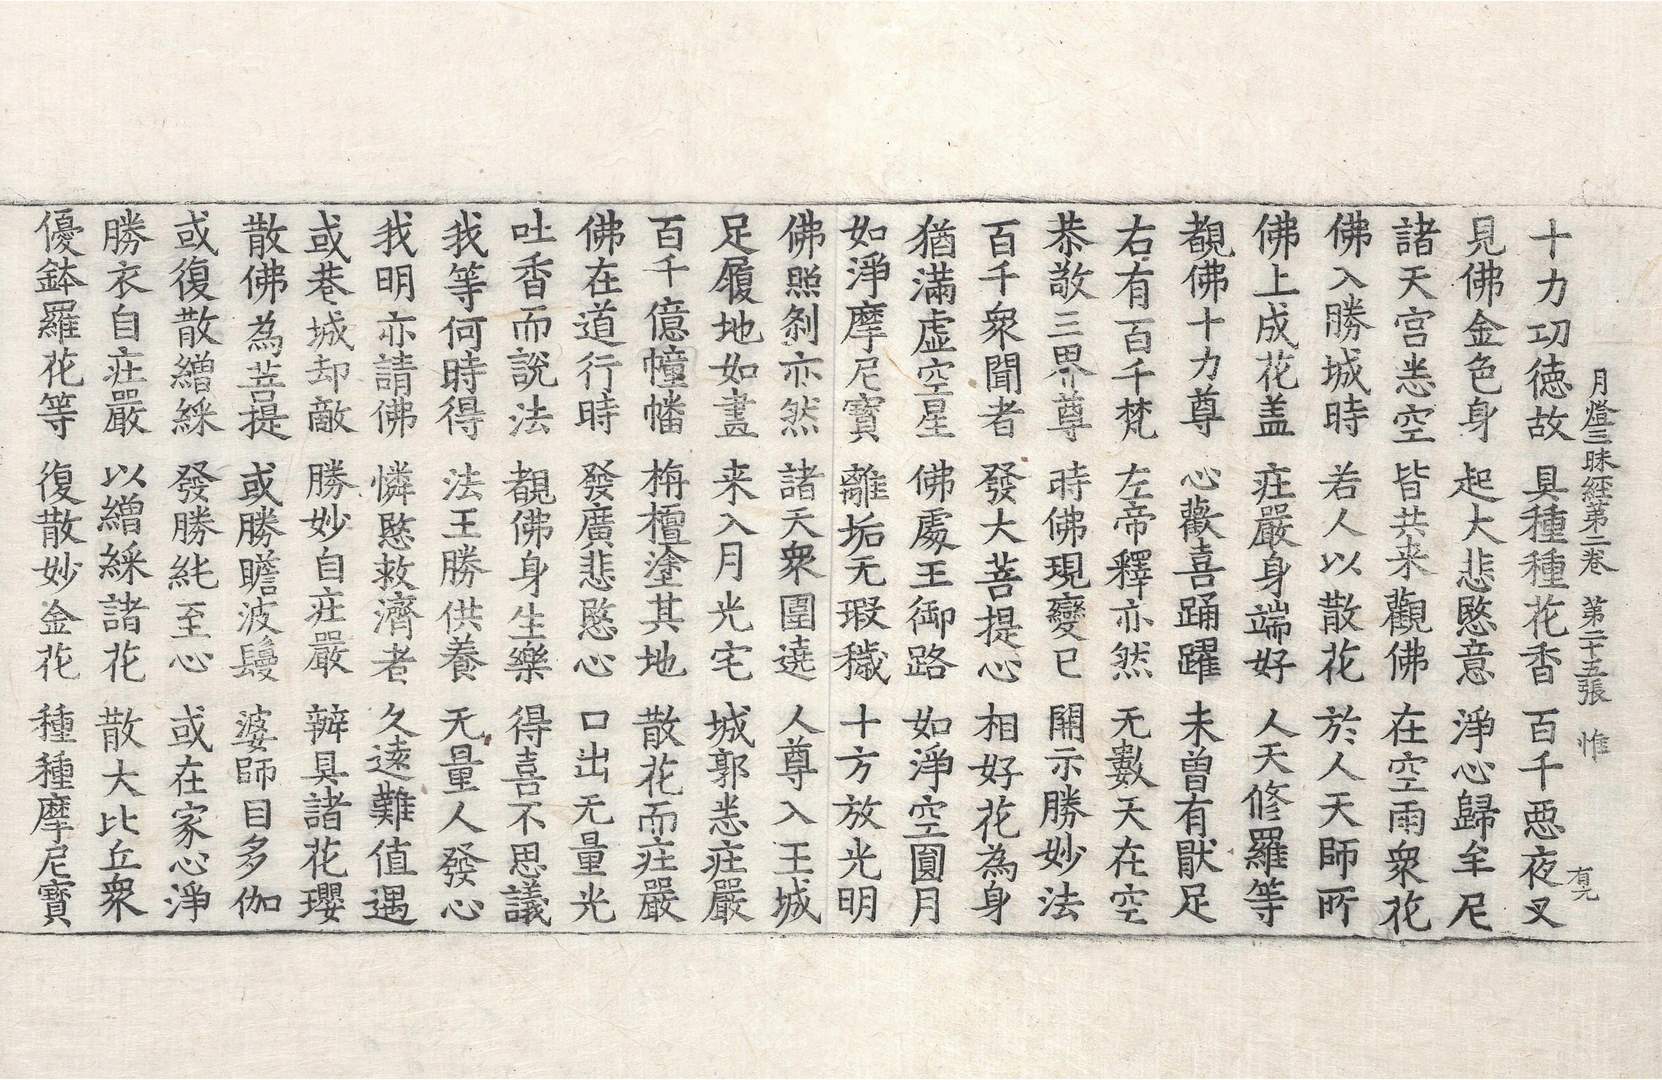 月燈三昧経第二卷 第二十五張 惟
有元
十力功徳故 具種種花香 百千惡夜叉
見佛金色身 起大悲愍意 淨心歸牟尼
諸天宮悉空 皆共来觀佛 在空雨衆花
佛入勝城時 若人以散花 於人天師所
佛上成花盖 庄嚴身端好 人天修羅等
覩佛十力尊 心歡喜踊躍 未曽有猒足
右有百千梵 左帝釋亦然 无數天在空
恭敬三界尊 時佛現變已 開示勝妙法
百千衆聞者 發大菩提心 相好花為身
猶滿虚空星 佛處王御路 如淨空圓月
如淨摩尼寶 離垢无瑕穢 十方放光明
佛照刹亦然 諸天衆圍遶 人尊入王城
足履地如畫 来入月光宅 城郭悉庄嚴
百千億幢幡 栴檀塗其地 散花而庄嚴
佛在道行時 發廣悲愍心 口出无量光
吐香而說法 覩佛身生樂 得喜不思議
我等何時得 法王勝供養 无量人發心
我明亦請佛 憐愍救濟者 久遠難值遇
或巷城却敵 勝妙自庄嚴 辨具諸花瓔
散佛為菩提 或勝瞻波鬘 婆師目多伽
或復散繒綵 發勝純至心 或在家心淨
勝衣自庄嚴 以繒綵諸花 散大比丘衆
優鉢羅花等 復散妙金花 種種摩尼寶